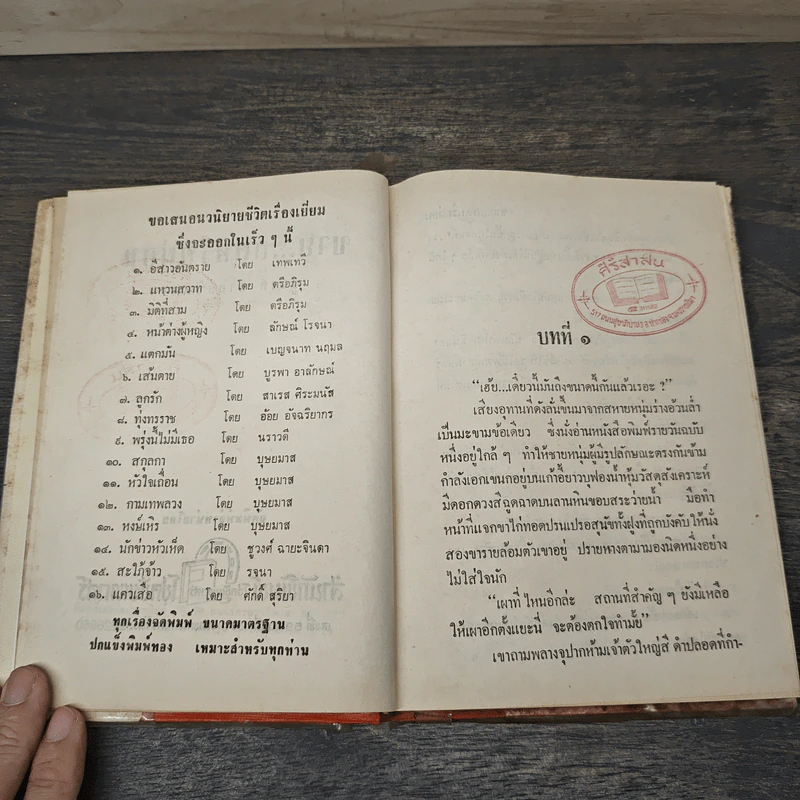 ขอเสนอนวนิยายชีวิตเรื่องเยี่ยม
ซึ่งจะออกในเร็ว ๆ นี้
๑. อีสาวอันตราย โดย เทพเทวี
๒. แหวนสวาท โดย ตรีอภิรุม
๓. มิติที่สาม โดย ตรีอภิรุม
๔. หน้าต่างผู้หญิง โดย ลักษณ์ โรจนา
๕. แตกมัน โดย เบญจนาท นฤมล
๖. เส้นตาย โดย บูรพา อาลักษณ์
๗. ลูกรัก โดย สาเรส ศิระมนัส
๘. ทุ่งทรราช โดย อ้อย อัจฉริยากร
๙. พรุ่งนี้ไม่มีเธอ โดย นราวดี
๑๐. สกุลกา โดย บุษยมาส
๑๑. หัวใจเถื่อน โดย บุษยมาส
๑๒. กามเทพลวง โดย บุษยมาส
๑๓. หงษ์เหิร โดย บุษยมาส
๑๔. นักข่าวหัวเห็ด โดย ชูวงศ์ ฉายะจินดา
๑๕. สะใภ้จ้าว โดย รจนา
๑๖. แควเสือ โดย ศักดิ์ สุริยา
ทุกเรื่องจัดพิมพ์ ขนาดมาตรฐาน
ปกแข็งพิมพ์ทอง เหมาะสำหรับทุกท่าน
คีรีสาส์น
บทที่ ๑
“เฮ้ย...เดี๋ยวนี้มันถึงขนาดนี้กันแล้วเรอะ ?”
เสียงอุทานที่ดังลั่นขึ้นมาจากสหายหนุ่มร่างอ้วนล่ำ
เป็นมะขามข้อเดียว ซึ่งนั่งอ่านหนังสือพิมพ์รายวันฉบับ
หนึ่งอยู่ใกล้ ๆ ทำให้ชายหนุ่มผู้มีรูปลักษณะตรงกันข้าม
กำลังเอกเขนกอยู่บนเก้าอี้ยาวบุฟองน้ำหุ้มวัสดุสังเคราะห์
มีดอกดวงสีฉูดฉาดบนลานหินขอบสระว่ายน้ำ มือทำ
หน้าที่แจกขาไก่ทอดปรนเปรอสุนัขทั้งฝูงที่ถูกบังคับให้นั่ง
สองขารายล้อมตัวเขาอยู่ ปรายหางตามามองนิดหนึ่งอย่าง
ไม่ใส่ใจนัก
“เผาที่ไหนอีกล่ะ สถานที่สำคัญ ๆ ยังมีเหลือ
ให้เผาอีกตั้งแยะนี่ จะต้องตกใจทำมั้ย”
เขาถามพลางจุปากห้ามเจ้าตัวใหญ่สี ดำปลอดที่กำ-